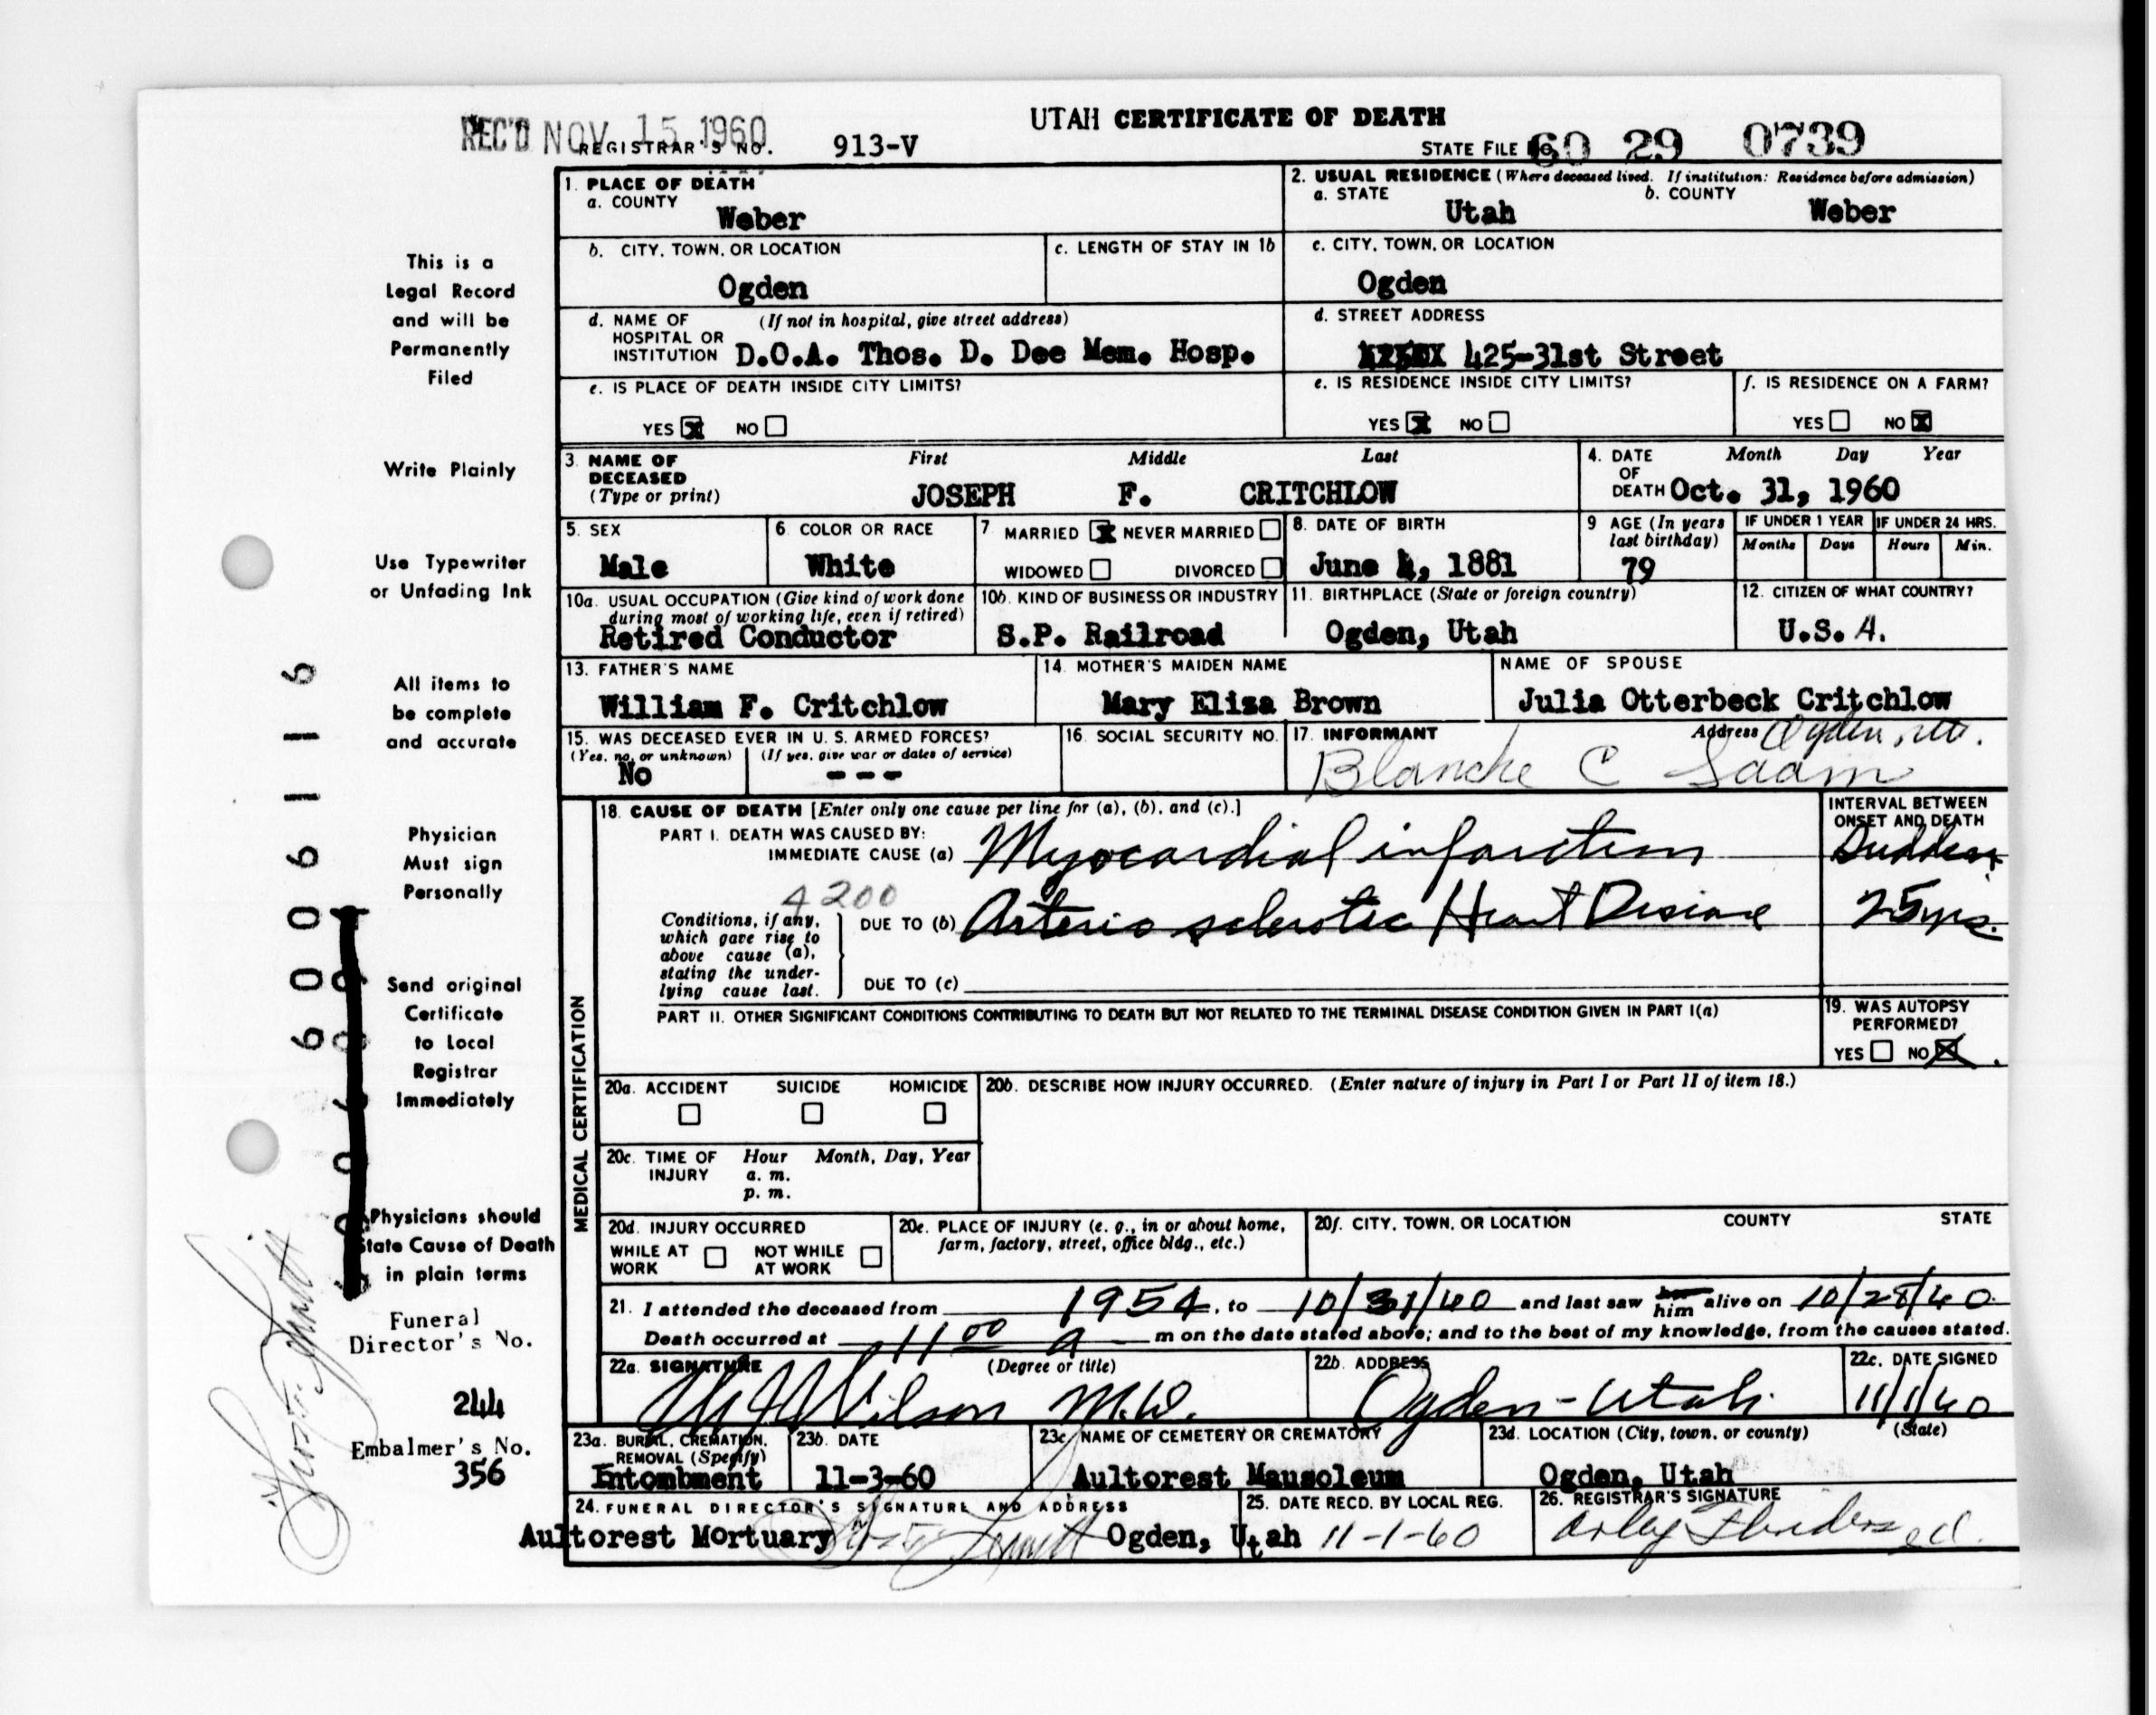 UTAH CERTIFICATE OF DEATH
REC'D NOV 15 1960
REGISTRAR'S NO. 913-V
STATE FILE 60 29 0739
1. PLACE OF DEATH
a. COUNTY
Weber
2. USUAL RESIDENCE (Where deceased lived. If institution: Residence before admission)
a. STATE b. COUNTY
Utah Weber
b. CITY, TOWN, OR LOCATION
Ogden
c. LENGTH OF STAY IN 1b
c. CITY, TOWN, OR LOCATION
Ogden
d. NAME OF HOSPITAL OR INSTITUTION (If not in hospital, give street address)
D.O.A. Thos. D. Dee Mem. Hosp.
d. STREET ADDRESS
425-31st Street
e. IS PLACE OF DEATH INSIDE CITY LIMITS?
YES X NO
e. IS RESIDENCE INSIDE CITY LIMITS?
YES X NO
f. IS RESIDENCE ON A FARM?
YES NO X
3. NAME OF DECEASED (Type or print)
First Middle Last
JOSEPH F. CRITCHLOW
4. DATE OF DEATH Month Day Year
Oct. 31, 1960
5. SEX
Male
6. COLOR OR RACE
White
7. MARRIED X NEVER MARRIED
WIDOWED DIVORCED
8. DATE OF BIRTH
June 4, 1881
9 AGE (In years last birthday)
79
IF UNDER 1 YEAR IF UNDER 24 HRS.
Months Days Hours Min.
10a. USUAL OCCUPATION (Give kind of work done during most of working life, even if retired)
Retired Conductor
10b. KIND OF BUSINESS OR INDUSTRY
S.P. Railroad
11. BIRTHPLACE (State or foreign country)
Ogden, Utah
12. CITIZEN OF WHAT COUNTRY?
U.S.A.
13. FATHER'S NAME
William F. Critchlow
14. MOTHER'S MAIDEN NAME
Mary Eliza Brown
NAME OF SPOUSE
Julia Otterbeck Critchlow
15. WAS DECEASED EVER IN U. S. ARMED FORCES?
(Yes, no, or unknown) (If yes, give war or dates of service)
No - - -
16. SOCIAL SECURITY NO.
17. INFORMANT Address Ogden, Ut.
Blanche C Saam
18. CAUSE OF DEATH [Enter only one cause per line for (a), (b), and (c).]
PART I. DEATH WAS CAUSED BY:
IMMEDIATE CAUSE (a) Myocardial infarction
4200
Conditions, if any, which gave rise to above cause (a), stating the underlying cause last.
DUE TO (b) Arterio sclerotic Heart Disease
DUE TO (c)
INTERVAL BETWEEN ONSET AND DEATH
Sudden
25 yrs.
PART II. OTHER SIGNIFICANT CONDITIONS CONTRIBUTING TO DEATH BUT NOT RELATED TO THE TERMINAL DISEASE CONDITION GIVEN IN PART I(a)
19. WAS AUTOPSY PERFORMED?
YES NO X
MEDICAL CERTIFICATION
20a. ACCIDENT SUICIDE HOMICIDE
20b. DESCRIBE HOW INJURY OCCURRED. (Enter nature of injury in Part I or Part II of item 18.)
20c. TIME OF INJURY Hour Month, Day, Year
a. m.
p. m.
20d. INJURY OCCURRED
WHILE AT WORK NOT WHILE AT WORK
20e. PLACE OF INJURY (e. g., in or about home, farm, factory, street, office bldg., etc.)
20f. CITY, TOWN, OR LOCATION COUNTY STATE
21. I attended the deceased from 1954, to 10/31/60 and last saw him alive on 10/28/60
Death occurred at 11 00 a m on the date stated above; and to the best of my knowledge, from the causes stated.
22a. SIGNATURE (Degree or title)
Wilson M.D.
22b. ADDRESS
Ogden - Utah
22c. DATE SIGNED
11/1/60
23a. BURIAL, CREMATION, REMOVAL (Specify)
Entombment
23b. DATE
11-3-60
23c. NAME OF CEMETERY OR CREMATORY
Aultorest Mausoleum
23d. LOCATION (City, town, or county) (State)
Ogden, Utah
24. FUNERAL DIRECTOR'S SIGNATURE AND ADDRESS
Aultorest Mortuary Ogden, Utah
25. DATE RECD. BY LOCAL REG.
11-1-60
26. REGISTRAR'S SIGNATURE
This is a
Legal Record
and will be
Permanently
Filed
Write Plainly
Use Typewriter
or Unfading Ink
All items to
be complete
and accurate
Physician
Must sign
Personally
Send original
Certificate
to Local
Registrar
Immediately
Physicians should
State Cause of Death
in plain terms
Funeral
Director's No.
244
Embalmer's No.
356